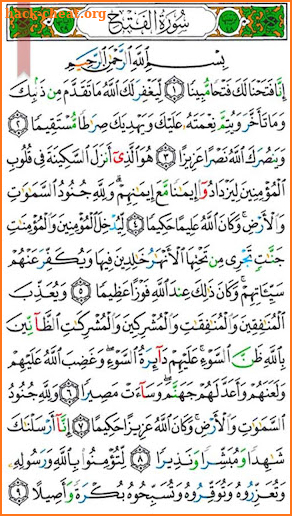 hack-cheat.org
سُورَةُ الفَتْحِ
بِسْمِ اللَّهِ الرَّحْمَٰنِ الرَّحِيمِ
إِنَّا فَتَحْنَا لَكَ فَتْحًا مُّبِينًا ١ لِّيَغْفِرَ لَكَ اللَّهُ مَا تَقَدَّمَ مِن ذَنۢبِكَ
وَمَا تَأَخَّرَ وَيُتِمَّ نِعْمَتَهُۥ عَلَيْكَ وَيَهْدِيَكَ صِرَٰطًا مُّسْتَقِيمًا ٢
وَيَنصُرَكَ اللَّهُ نَصْرًا عَزِيزًا ٣ هُوَ الَّذِىٓ أَنزَلَ السَّكِينَةَ فِى قُلُوبِ
الْمُؤْمِنِينَ لِيَزْدَادُوٓا۟ إِيمَٰنًا مَّعَ إِيمَٰنِهِمْ ۗ وَلِلَّهِ جُنُودُ السَّمَٰوَٰتِ
وَالْأَرْضِ ۚ وَكَانَ اللَّهُ عَلِيمًا حَكِيمًا ٤ لِّيُدْخِلَ الْمُؤْمِنِينَ وَالْمُؤْمِنَٰتِ
جَنَّٰتٍ تَجْرِى مِن تَحْتِهَا الْأَنْهَٰرُ خَٰلِدِينَ فِيهَا وَيُكَفِّرَ عَنْهُمْ
سَيِّـَٔاتِهِمْ ۚ وَكَانَ ذَٰلِكَ عِندَ اللَّهِ فَوْزًا عَظِيمًا ٥ وَيُعَذِّبَ
الْمُنَٰفِقِينَ وَالْمُنَٰفِقَٰتِ وَالْمُشْرِكِينَ وَالْمُشْرِكَٰتِ الظَّآنِّينَ
بِاللَّهِ ظَنَّ السَّوْءِ ۚ عَلَيْهِمْ دَآئِرَةُ السَّوْءِ ۖ وَغَضِبَ اللَّهُ عَلَيْهِمْ
وَلَعَنَهُمْ وَأَعَدَّ لَهُمْ جَهَنَّمَ ۖ وَسَآءَتْ مَصِيرًا ٦ وَلِلَّهِ جُنُودُ
السَّمَٰوَٰتِ وَالْأَرْضِ ۚ وَكَانَ اللَّهُ عَزِيزًا حَكِيمًا ٧ إِنَّآ أَرْسَلْنَٰكَ
شَٰهِدًا وَمُبَشِّرًا وَنَذِيرًا ٨ لِّتُؤْمِنُوا۟ بِاللَّهِ وَرَسُولِهِۦ
وَتُعَزِّرُوهُ وَتُوَقِّرُوهُ وَتُسَبِّحُوهُ بُكْرَةً وَأَصِيلًا ٩
hack-cheat.org